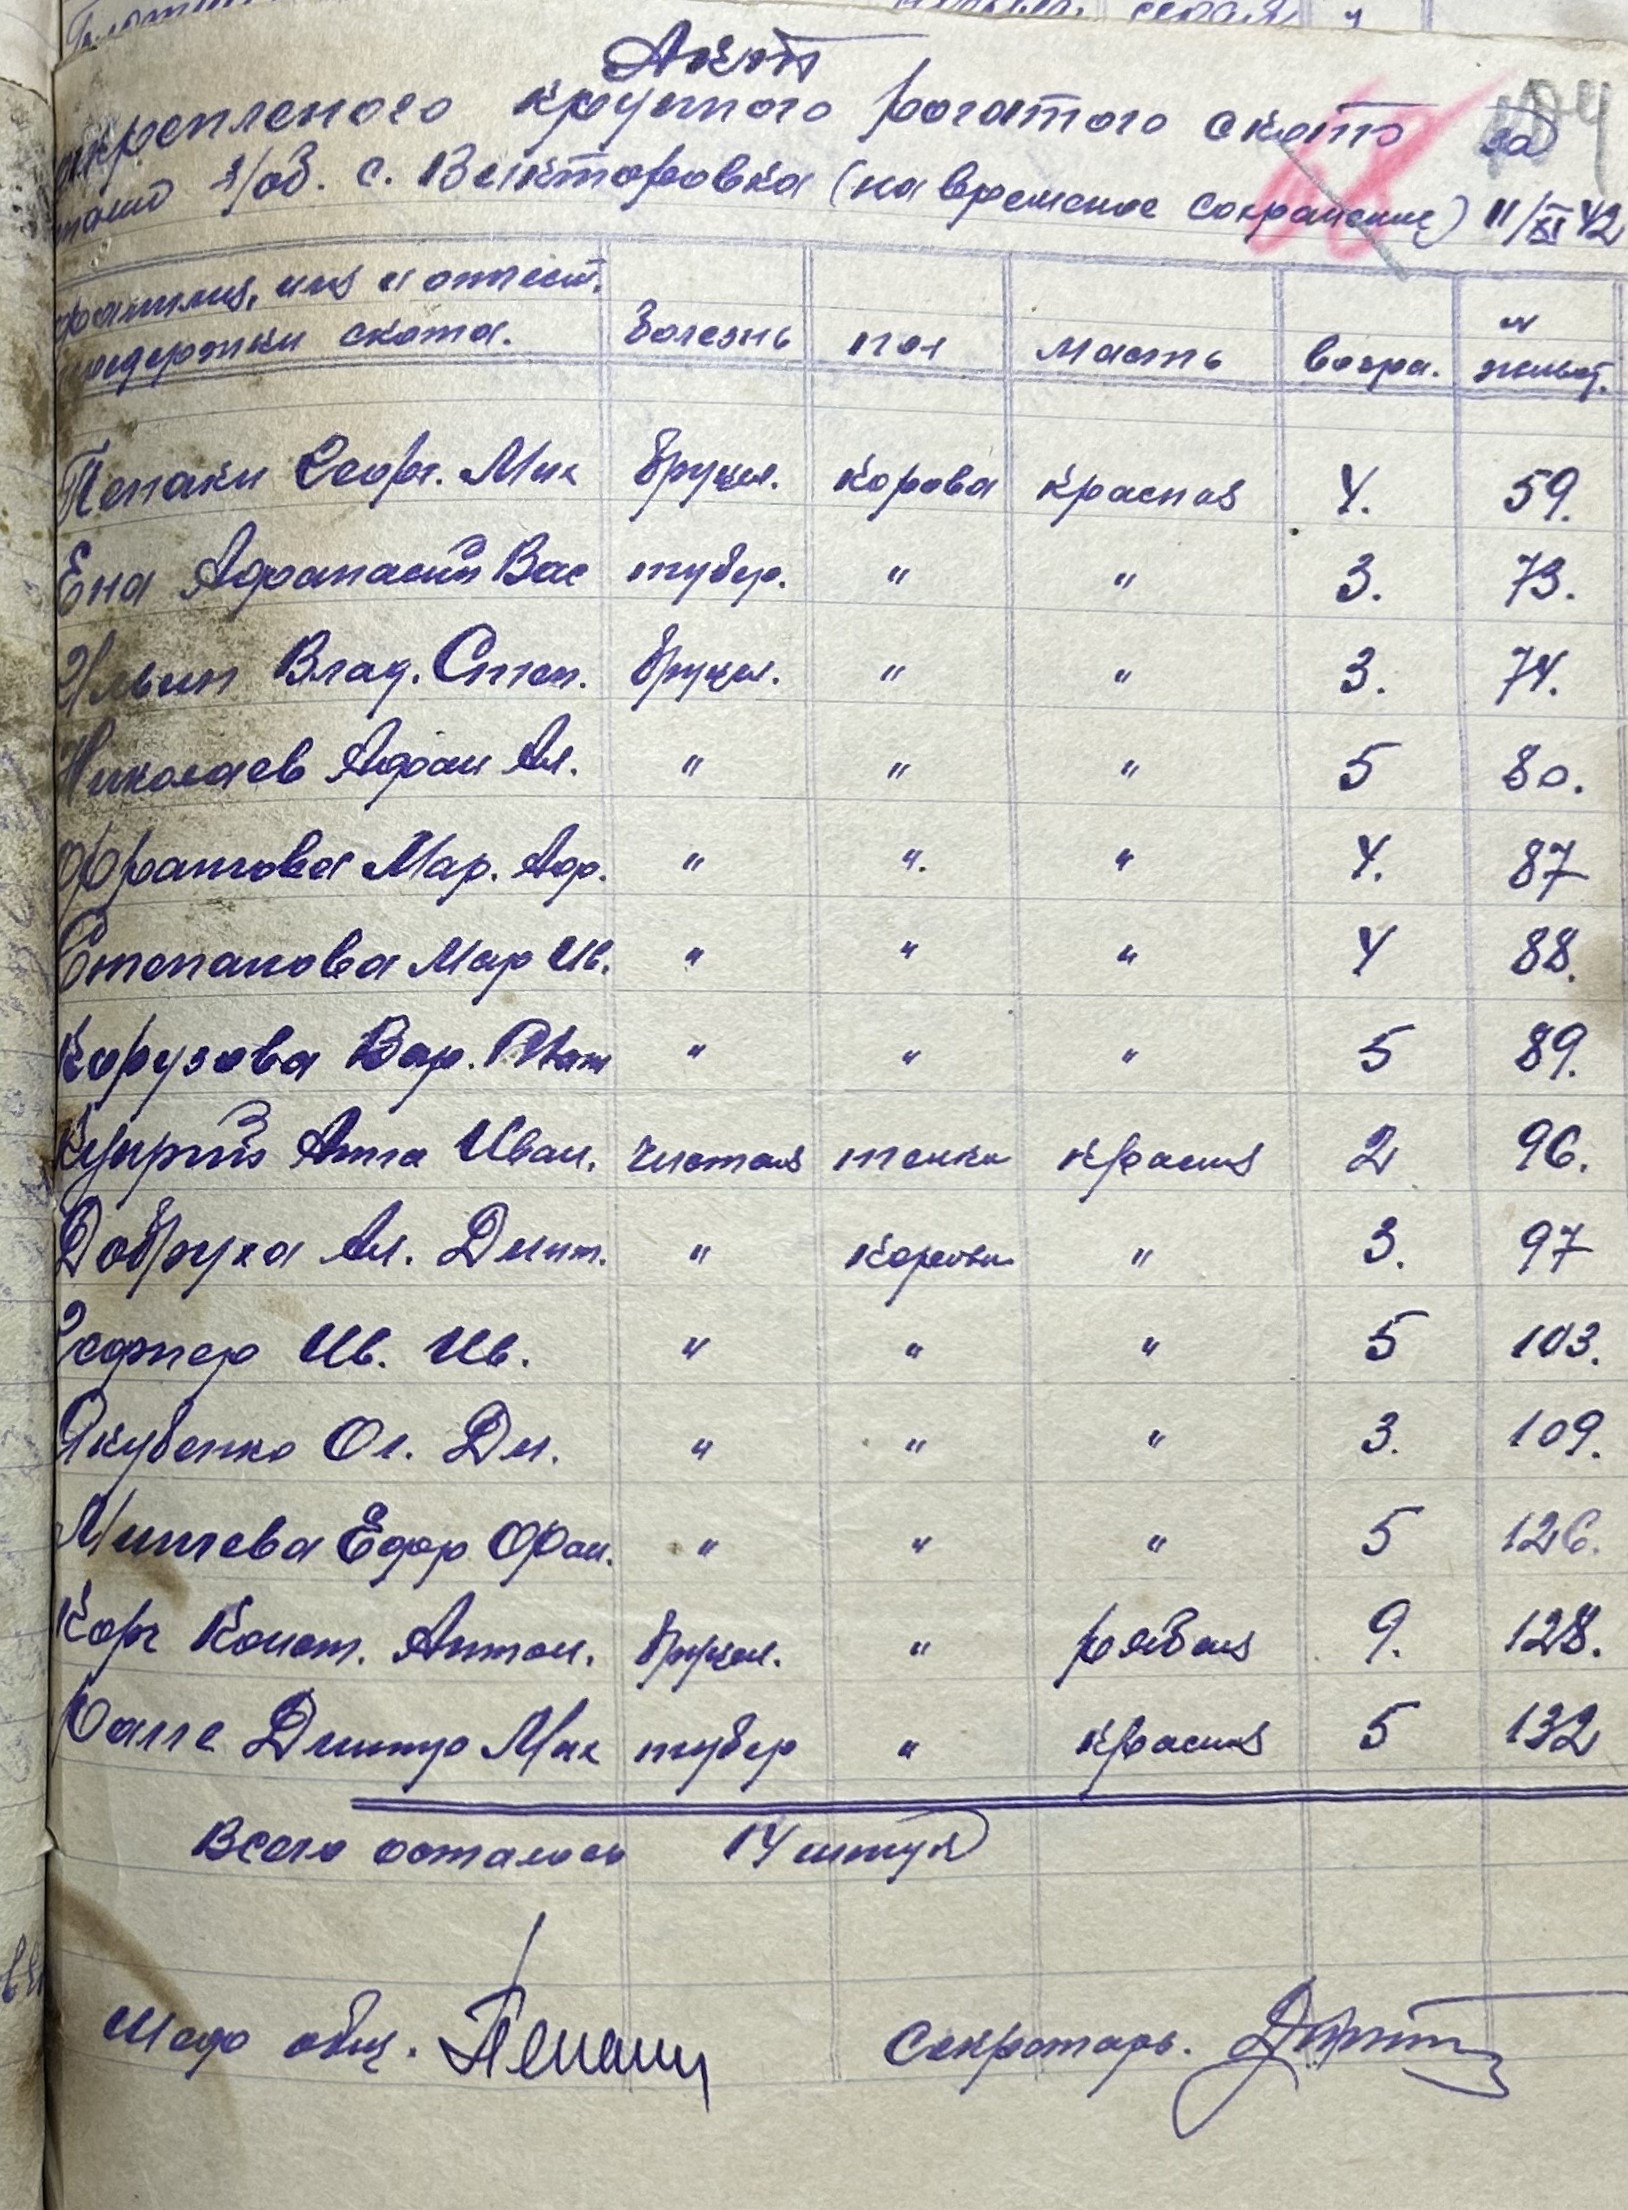 Акт
закрепленого крупного рогатого скота за
з/об. с. Викторовка (на временое сохранение) 11/XI 42
фамилия, имя и отчест.
держки скота. болезнь пол масть возра. № живот.
Попаки Георг. Мих бруцел. корова красная 4. 59.
Ена Афанасий Вас тубер. " " 3. 73.
Ильин Влад. Степ. бруцел. " " 3. 74.
Николаев Афан Ал. " " " 5 80.
Мар. Аф. " ". " 4. 87
Степанова Мар Ив. " " " 4 88.
Корузова Вар. " " " 5 89.
Куприй Анна Иван. чистая телка красная 2 96.
Добруха Ал. Дмит. " корова " 3. 97
Гефнер Ив. Ив. " " " 5 103.
Якубенко Ол. Дм. " " " 3. 109.
Митева Едор Фом. " " " 5 126.
Корч Конст. Антон. бруцел. " рябая 9. 128.
Дмитр Мих тубер " красная 5 132
Всего осталось 14 штук
Шеф общ. Секретарь.